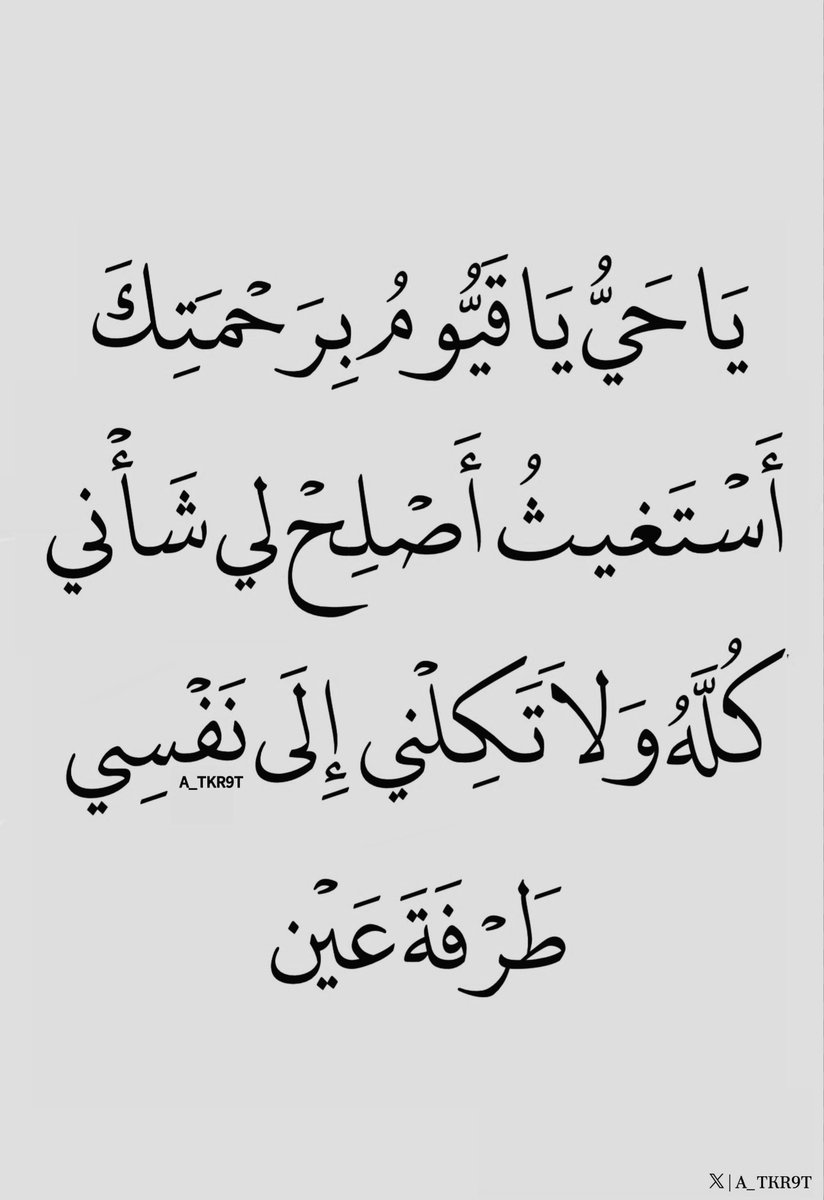 يَا حَيُّ يَا قَيُّومُ بِرَحْمَتِكَ
أَسْتَغيثُ أَصْلِحْ لي شَأْني
كُلَّهُ وَلاَ تَكِلْني إِلَى نَفْسِي
A_TKR9T
طَرْفَةَ عَيْن
𝕏 | A_TKR9T